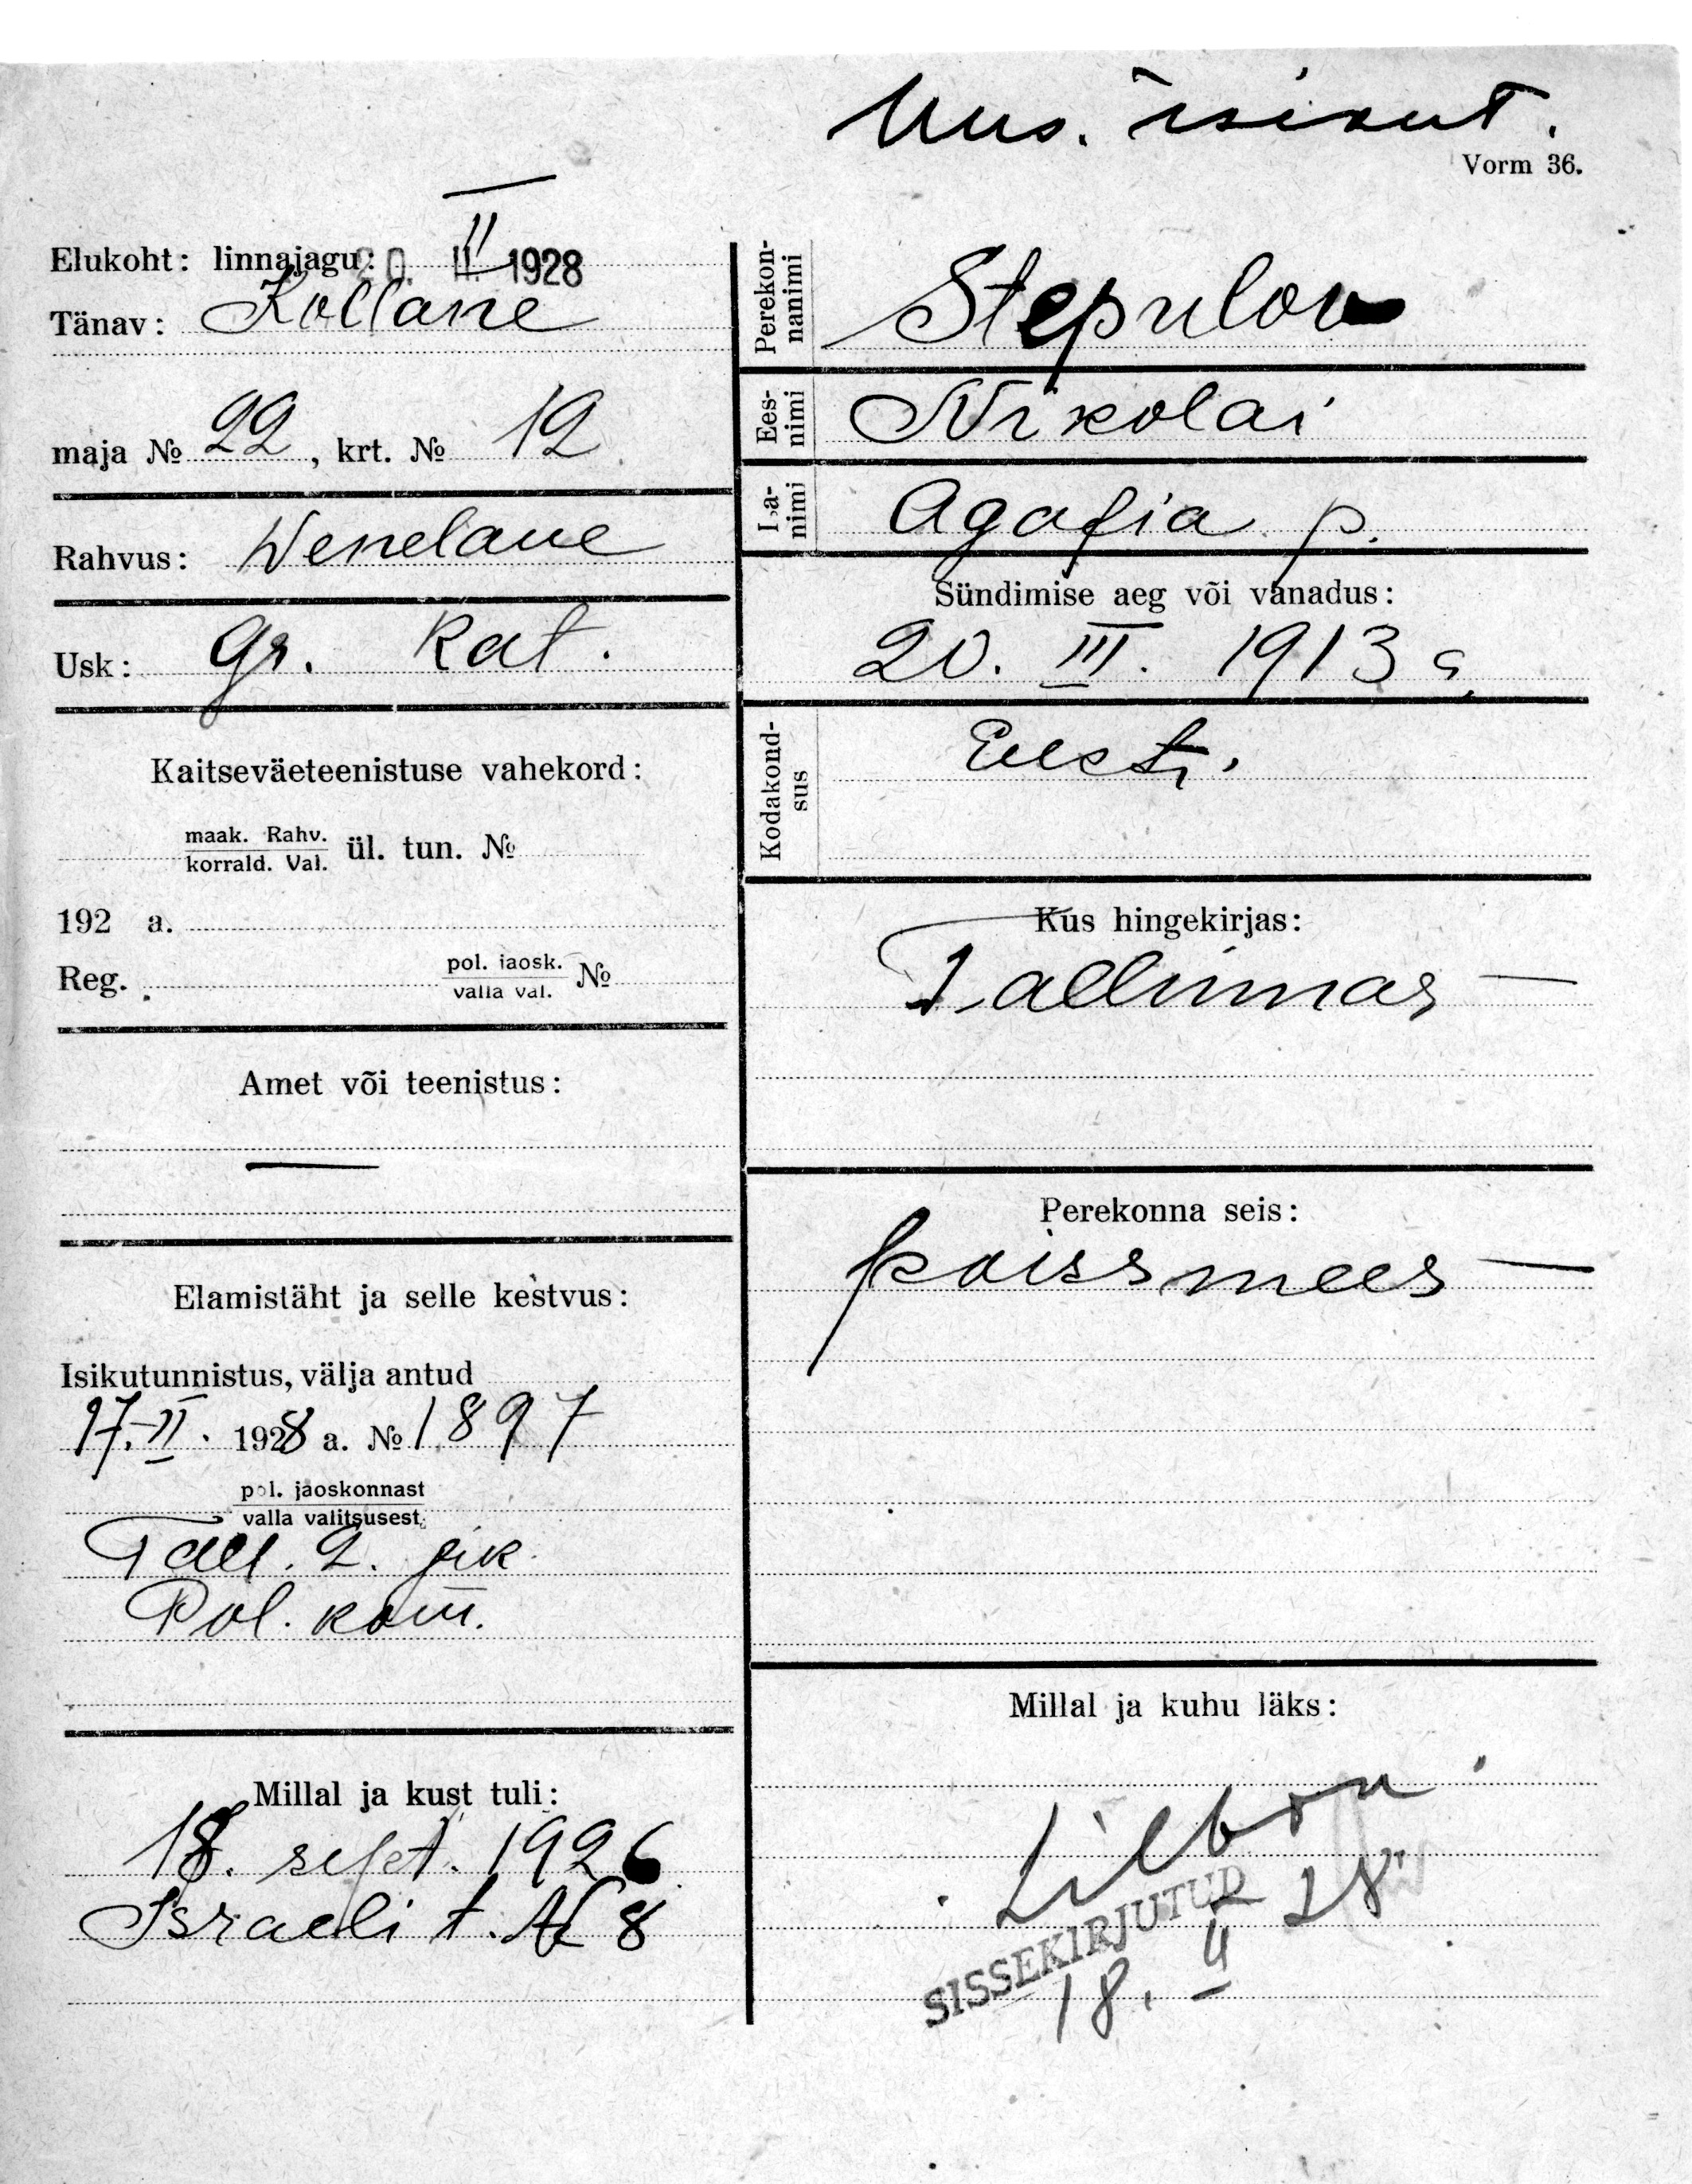 Uus. isikut.
Vorm 36.
Elukoht: linnajagu: II
20. II 1928
Tänav: Kollane
maja № 22, krt. № 12
Rahvus: Wenelane
Usk: Gr. Kat.
Kaitseväeteenistuse vahekord:
maak. Rahv.
korrald. Val. ül. tun. №
192 a.
Reg. pol. jaosk. №
valla val.
Amet või teenistus:
—
Elamistäht ja selle kestvus:
Isikutunnistus, välja antud
17. II. 1928 a. № 1897
pol. jaoskonnast
valla valitsusest
Tall. 2. jsk
Pol. kom.
Millal ja kust tuli:
18. sept. 1926
Israeli t. № 8
Perekonnanimi Stepulow
Eesnimi Nikolai
Isanimi Agafia p.
Sündimise aeg või vanadus:
20. III. 1913 a
Kodakondsus Eesti.
Kus hingekirjas:
Tallinnas —
Perekonna seis:
poissmees —
Millal ja kuhu läks:
SISSEKIRJUTUD
18. II 28